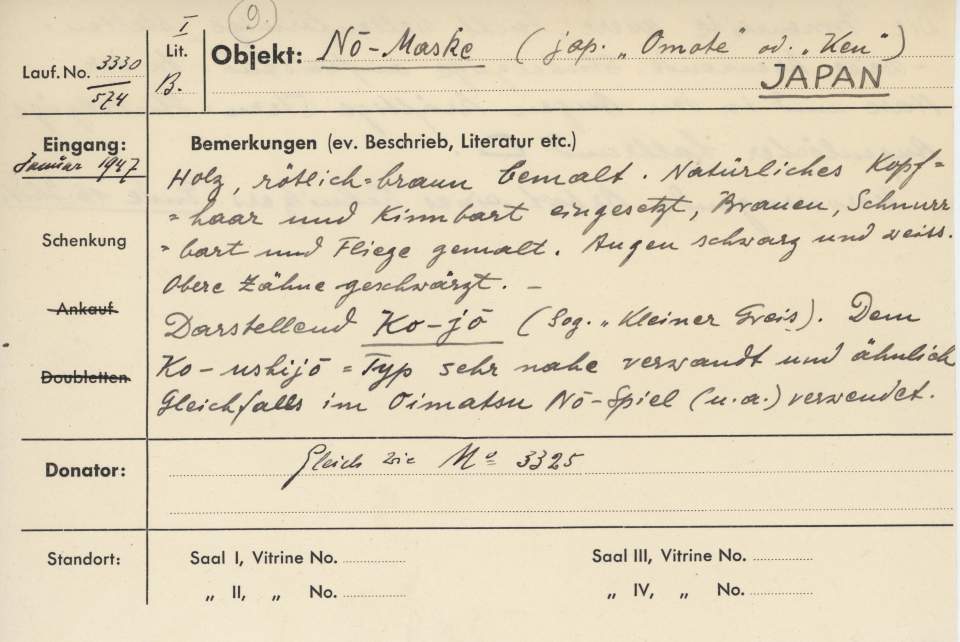 9.
Lauf. No. 3330
574
I
Lit.
B.
Objekt: Nō-Maske (jap. „Omote" od. „Ken")
JAPAN
Eingang:
Januar 1947
Schenkung
Ankauf
Doubletten
Bemerkungen (ev. Beschrieb, Literatur etc.)
Holz, rötlich=braun bemalt. Natürliches Kopf=
=haar und Kinnbart eingesetzt, Brauen, Schnurr
=bart und Fliege gemalt. Augen schwarz und weiss.
Obere Zähne geschwärzt. –
Darstellend Ko-jō (Sog. „Kleiner Greis). Dem
Ko-ushijō=Typ sehr nahe verwandt und ähnlich
Gleichfalls im Oimatsu Nō-Spiel (u.a.) verwendet.
Donator: Gleich wie No 3325
Standort:
Saal I, Vitrine No.
„ II, „ No.
Saal III, Vitrine No.
„ IV, „ No.